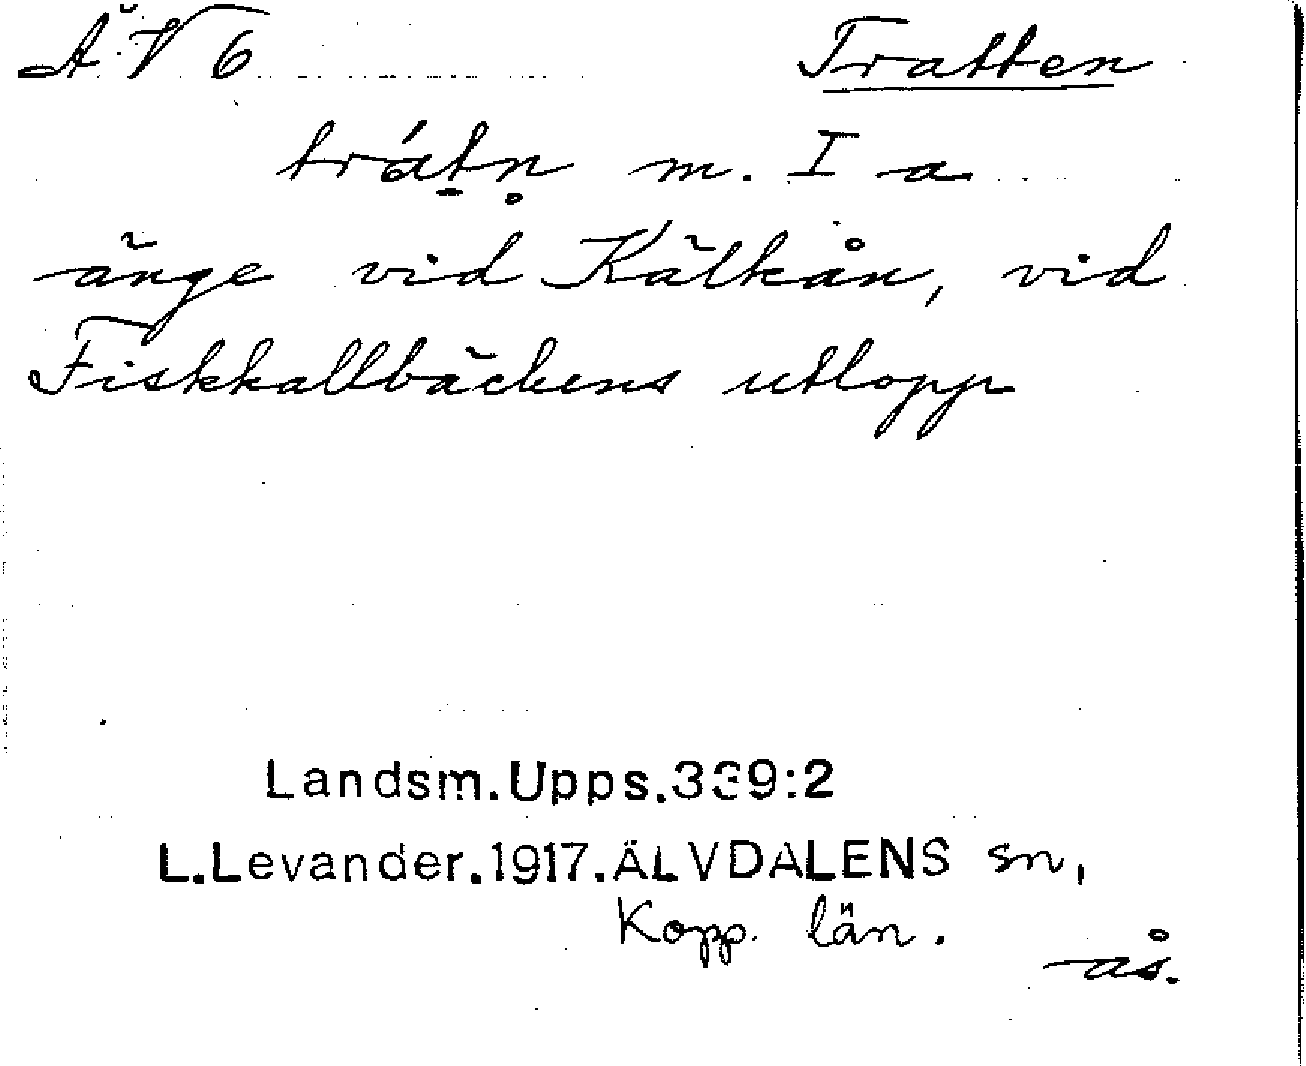 Ä V 6 Tratten
trát̠n̥ m. I a
änge vid Kälkån, vid
Fiskkallbäckens utlopp
Landsm.Upps.339:2
L.Levander.1917.ÄLVDALENS sn,
Kopp. län.
ås.